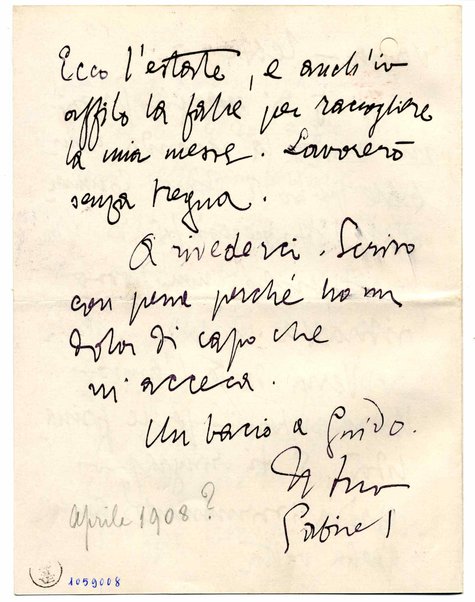 Ecco l'estate, e anch'io
affilo la falce per raccogliere
la mia messe. Lavorerò
senza tregua.
A rivederci. Scrivo
con pena perché ho un
dolor di capo che
m'acceca.
Un bacio a Guido.
Il tuo
Gabriel
Aprile 1908?
1059008